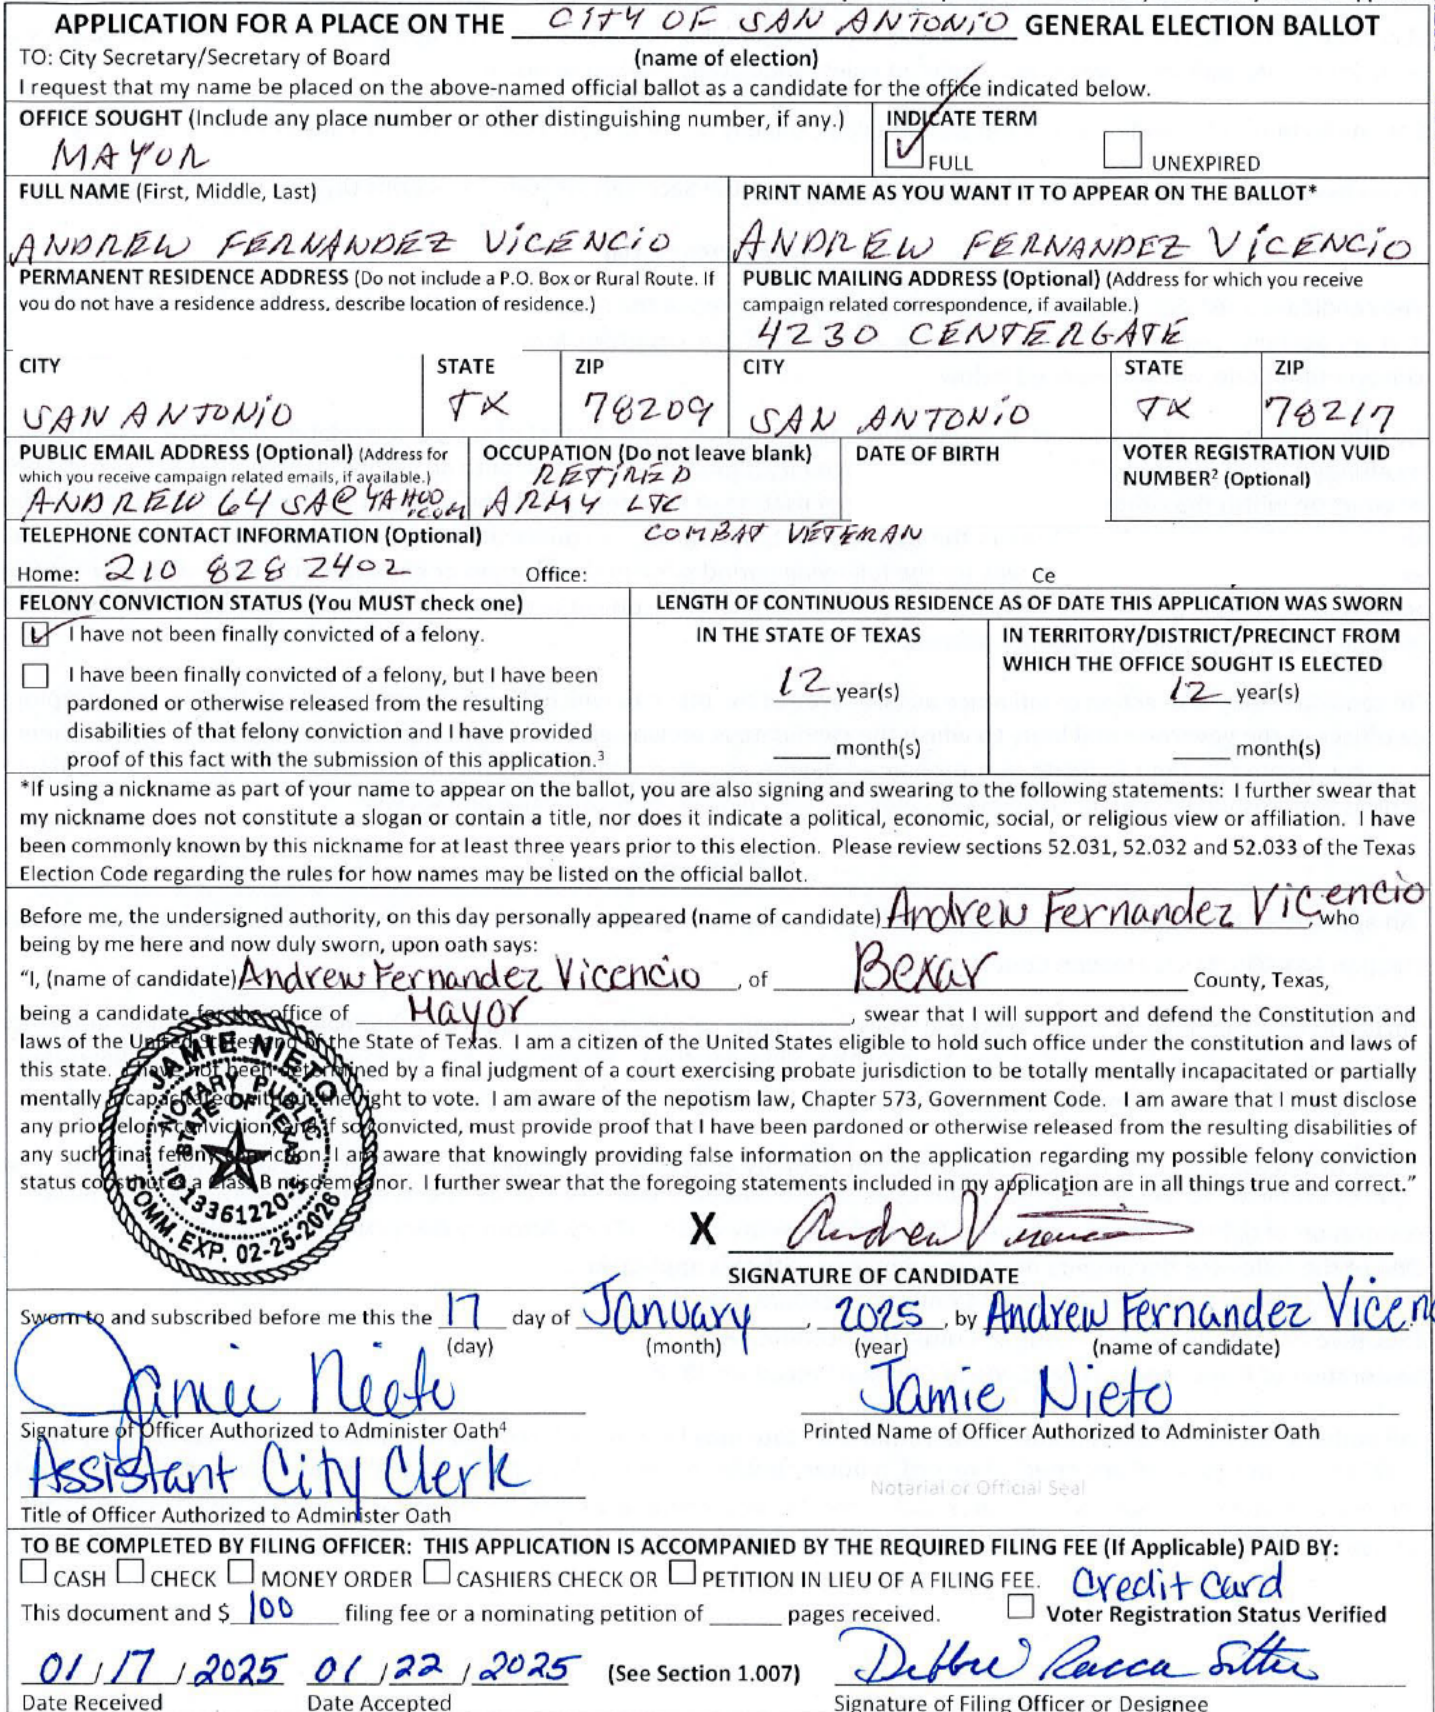 APPLICATION FOR A PLACE ON THE CITY OF SAN ANTONIO GENERAL ELECTION BALLOT
TO: City Secretary/Secretary of Board (name of election)
I request that my name be placed on the above-named official ballot as a candidate for the office indicated below.
OFFICE SOUGHT (Include any place number or other distinguishing number, if any.) INDICATE TERM
MAYOR FULL UNEXPIRED
FULL NAME (First, Middle, Last) PRINT NAME AS YOU WANT IT TO APPEAR ON THE BALLOT*
ANDREW FERNANDEZ VICENCIO ANDREW FERNANDEZ VICENCIO
PERMANENT RESIDENCE ADDRESS (Do not include a P.O. Box or Rural Route. If you do not have a residence address, describe location of residence.)
PUBLIC MAILING ADDRESS (Optional) (Address for which you receive campaign related correspondence, if available.)
4230 CENTERGATE
CITY STATE ZIP CITY STATE ZIP
SAN ANTONIO TX 78209 SAN ANTONIO TX 78217
PUBLIC EMAIL ADDRESS (Optional) (Address for which you receive campaign related emails, if available.)
ANDREW64SA@YAHOO.COM
OCCUPATION (Do not leave blank)
RETIRED
ARMY LTC
COMBAT VETERAN
DATE OF BIRTH
VOTER REGISTRATION VUID NUMBER² (Optional)
TELEPHONE CONTACT INFORMATION (Optional)
Home: 210 828 2402 Office: Ce
FELONY CONVICTION STATUS (You MUST check one)
I have not been finally convicted of a felony.
I have been finally convicted of a felony, but I have been
pardoned or otherwise released from the resulting
disabilities of that felony conviction and I have provided
proof of this fact with the submission of this application.³
LENGTH OF CONTINUOUS RESIDENCE AS OF DATE THIS APPLICATION WAS SWORN
IN THE STATE OF TEXAS
12 year(s)
month(s)
IN TERRITORY/DISTRICT/PRECINCT FROM
WHICH THE OFFICE SOUGHT IS ELECTED
12 year(s)
month(s)
*If using a nickname as part of your name to appear on the ballot, you are also signing and swearing to the following statements: I further swear that
my nickname does not constitute a slogan or contain a title, nor does it indicate a political, economic, social, or religious view or affiliation. I have
been commonly known by this nickname for at least three years prior to this election. Please review sections 52.031, 52.032 and 52.033 of the Texas
Election Code regarding the rules for how names may be listed on the official ballot.
Before me, the undersigned authority, on this day personally appeared (name of candidate) Andrew Fernandez Vicencio, who
being by me here and now duly sworn, upon oath says:
"I, (name of candidate) Andrew Fernandez Vicencio, of Bexar County, Texas,
being a candidate for the office of Mayor, swear that I will support and defend the Constitution and
laws of the United States and of the State of Texas. I am a citizen of the United States eligible to hold such office under the constitution and laws of
this state. I have not been determined by a final judgment of a court exercising probate jurisdiction to be totally mentally incapacitated or partially
mentally incapacitated without the right to vote. I am aware of the nepotism law, Chapter 573, Government Code. I am aware that I must disclose
any prior felony conviction, and if so convicted, must provide proof that I have been pardoned or otherwise released from the resulting disabilities of
any such final felony conviction. I am aware that knowingly providing false information on the application regarding my possible felony conviction
status constitutes a Class B misdemeanor. I further swear that the foregoing statements included in my application are in all things true and correct."
JAMIE NIETO
NOTARY PUBLIC
STATE OF TEXAS
ID 13361220-5
COMM. EXP. 02-25-2026
X Andrew Vicencio
SIGNATURE OF CANDIDATE
Sworn to and subscribed before me this the 17 day of January, 2025, by Andrew Fernandez Vicen
(day) (month) (year) (name of candidate)
Jamie Nieto Jamie Nieto
Signature of Officer Authorized to Administer Oath⁴ Printed Name of Officer Authorized to Administer Oath
Assistant City Clerk
Notarial or Official Seal
Title of Officer Authorized to Administer Oath
TO BE COMPLETED BY FILING OFFICER: THIS APPLICATION IS ACCOMPANIED BY THE REQUIRED FILING FEE (If Applicable) PAID BY:
CASH CHECK MONEY ORDER CASHIERS CHECK OR PETITION IN LIEU OF A FILING FEE. Credit Card
This document and $ 100 filing fee or a nominating petition of pages received. Voter Registration Status Verified
01/17/2025 01/22/2025 (See Section 1.007) Debbie Racca-Sittre
Date Received Date Accepted Signature of Filing Officer or Designee